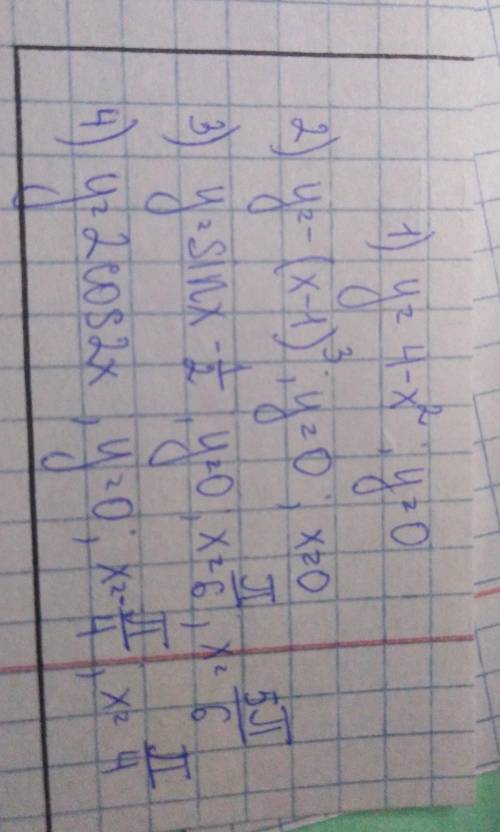 1) y = 4 - x²; y = 0
2) y = -(x-1)³; y = 0; x = 0
3) y = sinx - 1/2, y = 0, x = π/6, x = 5π/6
4) y = 2cos2x, y = 0; x = -π/4, x = π/4